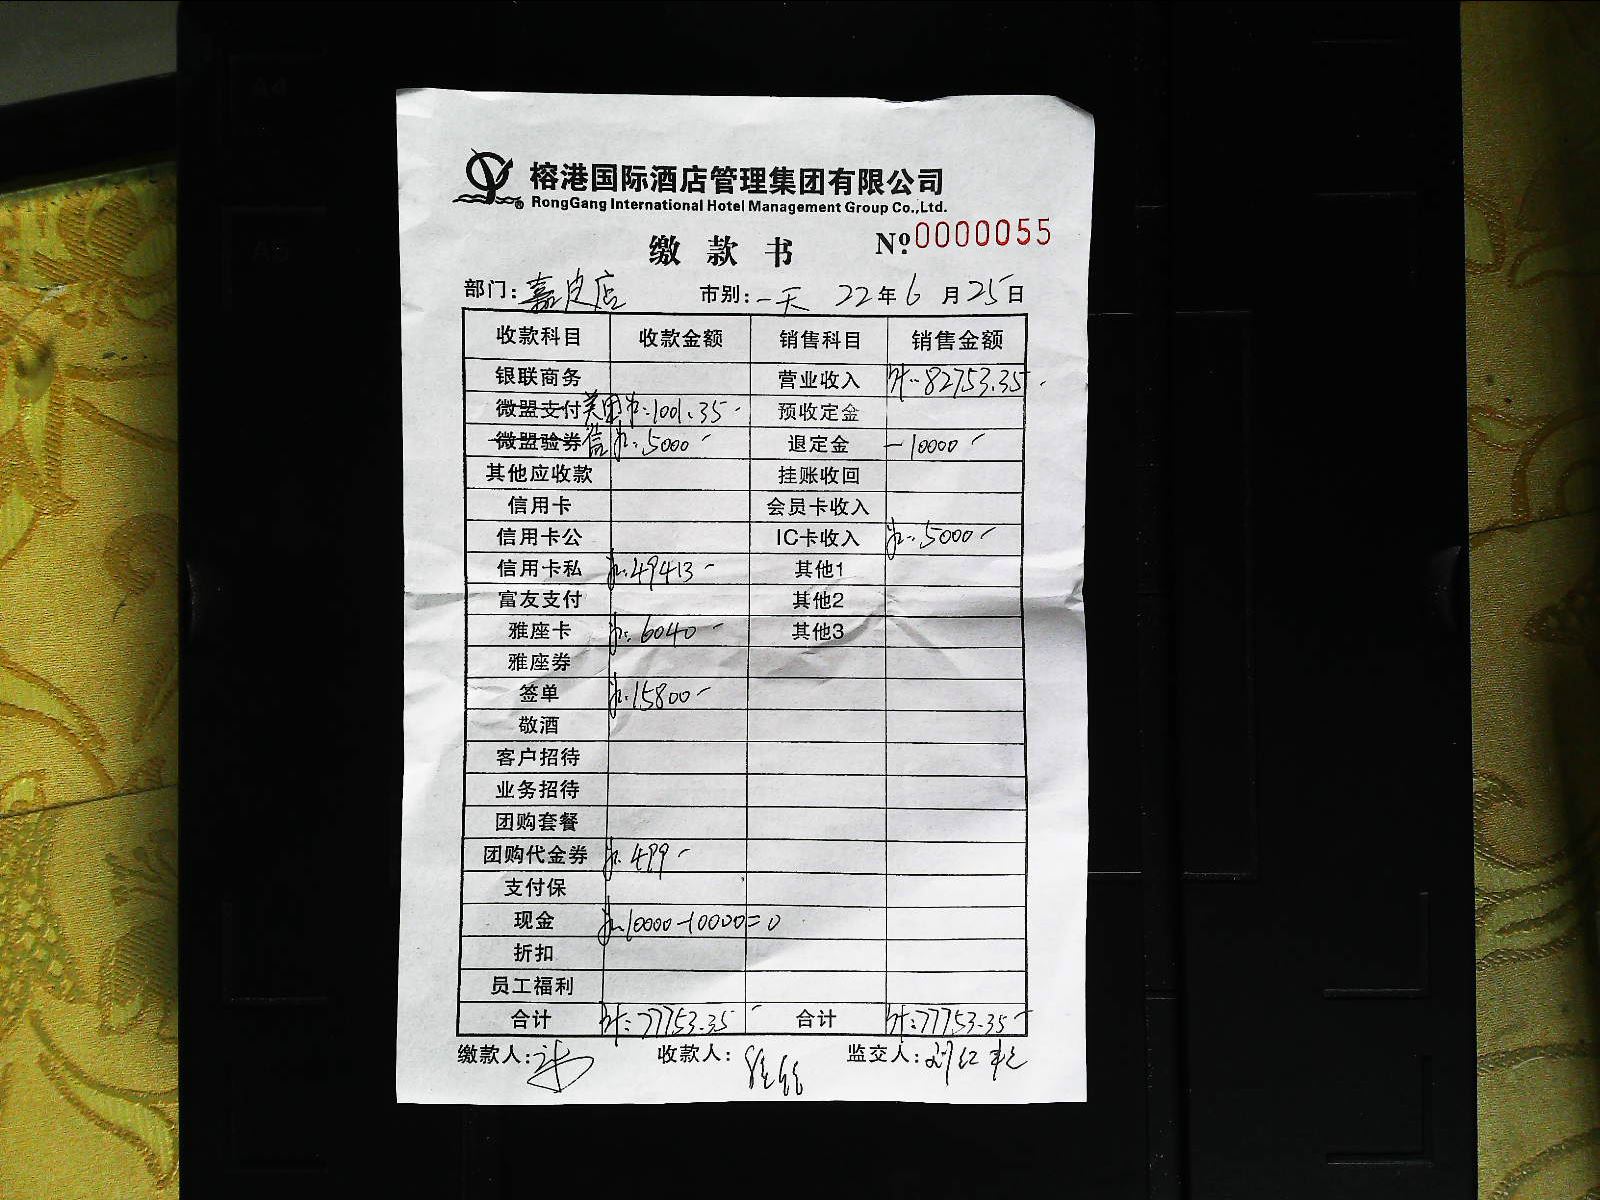 榕港国际酒店管理集团有限公司
RongGang International Hotel Management Group Co.,Ltd.
缴款书 №0000055
部门:嘉皮店 市别:一天 22年6月25日
收款科目 收款金额 销售科目 销售金额
银联商务 营业收入 计:82753.35
微盟支付 美团 :1001.35 预收定金
微盟验券 :5000 退定金 -10000
其他应收款 挂账收回
信用卡 会员卡收入
信用卡公 IC卡收入 :5000
信用卡私 :49413 其他1
富友支付 其他2
雅座卡 :6040 其他3
雅座券
签单 :15800
敬酒
客户招待
业务招待
团购套餐
团购代金券 :499
支付保
现金 :10000-10000=0
折扣
员工福利
合计 计:77753.35 合计 计:77753.35
缴款人: 收款人: 监交人:
A4
A5